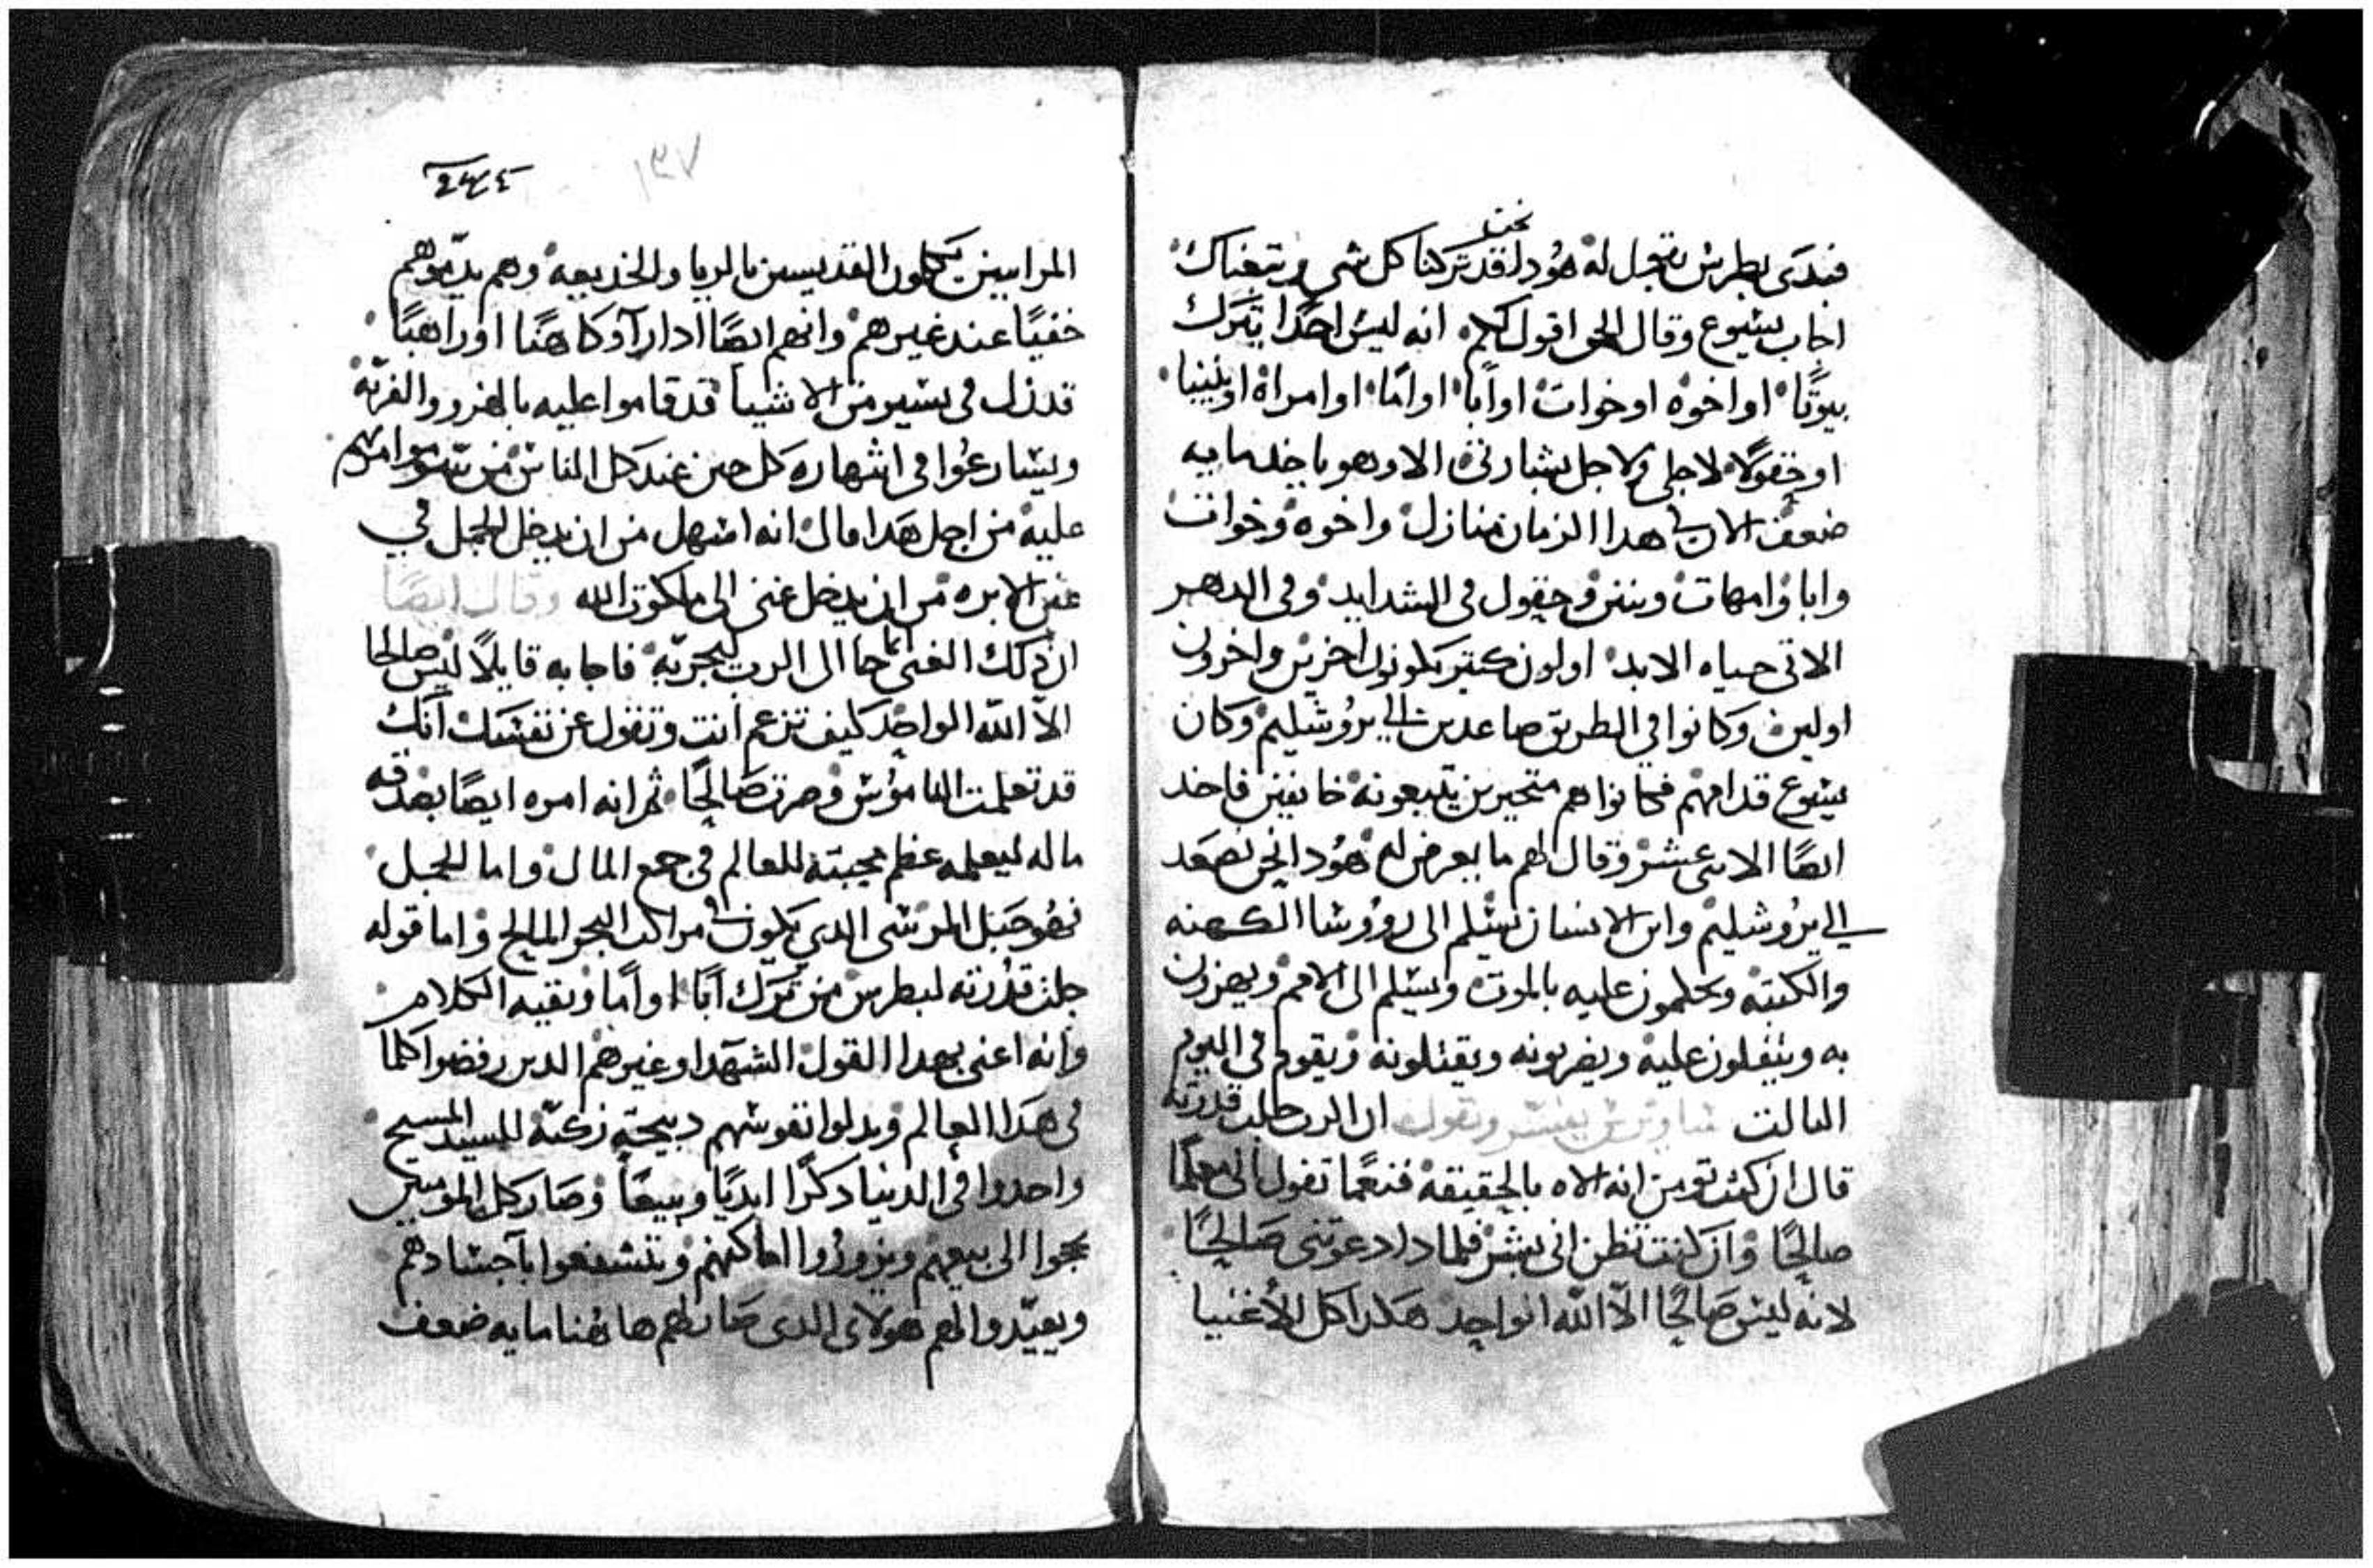 نحن
فبدى بطرس يقول له هودا قد تركنا كل شي وتبعناك
اجاب يسوع وقال الحق اقول لكم انه ليس احدًا يترك
بيوتًا او اخوه او خوات او آبا او امًا او امراة او بنينا
او حقولًا لاجلي ولاجل بشارتي الا وهو ياخد مايه
ضعف الان في هدا الزمان منازل واخوه وخوات
وابا وامهات وبنين وحقول في الشدايد وفي الدهر
الاتي حياه الابد اولون كتير يكونون اخرين واخرون
اولين وكانوا في الطريق صاعدين الي يروشليم وكان
يسوع قدامهم فكانوا هم متحيرين يتبعونه خايفين فاخد
ايضًا الاتني عشر وقال لهم ما يعرض له هودا نحن نصعد
الي يروشليم وابن الانسان يسلم الى روؤسا الكهنه
والكتبه ويحكمون عليه بالموت ويسلم الى الامم ويهزون
به ويتفلون عليه ويضربونه ويقتلونه ويقوم في اليوم
التالت يفسر ويقول ان الرب جلت قدرته
قال ان كنت تومن انه الاه بالحقيقه فنعمًا تقول لي معلمًا
صالحًا وان كنت تظن اني بشر فلمادا دعوتني صالحًا
لانه ليس صالحًا الّا الله الواحد هكدا كل الاغنيا
١٣٧
المرايين يكلون القديسين بالريا والخديعه وهم يدموهم
خفيًا عند غيرهم وانهم ايضًا ادا رآو كاهنًا او راهبًا
قد زل في يسير من الاشيا قد قاموا عليه بالضرر والفريّه
ويسارعوا في اشهاره كل حين عند كل الناس من
عليه من اجل هدا قال انه اسهل من ان يدخل الجمل في
عين الابره من ان يدخل غني الى ملكوت الله وقال ايضًا
ان دلك الغني انما جا الى الرب ليجربه فاجابه قايلًا ليس صالحا
الّا الله الواحد كيف تزعم انت وتقول عن نفسك انك
قد تعلمت الناموس وصرت صالحًا ثم انه امره ايضًا بصدقه
ماله ليعلمه عظم محبته للعالم في جمع المال واما الجمل
فهو حبل المرسى الدي يكون في مراكب البحر المالح واما قوله
جلت قدرته لبطرس من ترك آبًا او آمًا وبقيه الكلام
وانه اعنى بهدا القول الشهدا وغيرهم الدين رفضوا كلما
في هدا العالم وبدلوا نفوسهم دبيحه زكيّه للسيد المسيح
واخدوا في الدنيا دكرًا ابديًا وبيعًا وصار كل المومنين
يجوا الى بيعهم ويزوروا اماكنهم ويتشفعوا باجسادهم
ويعيّدوا لهم هولاي الدي صار لهم هاهنا مايه ضعف